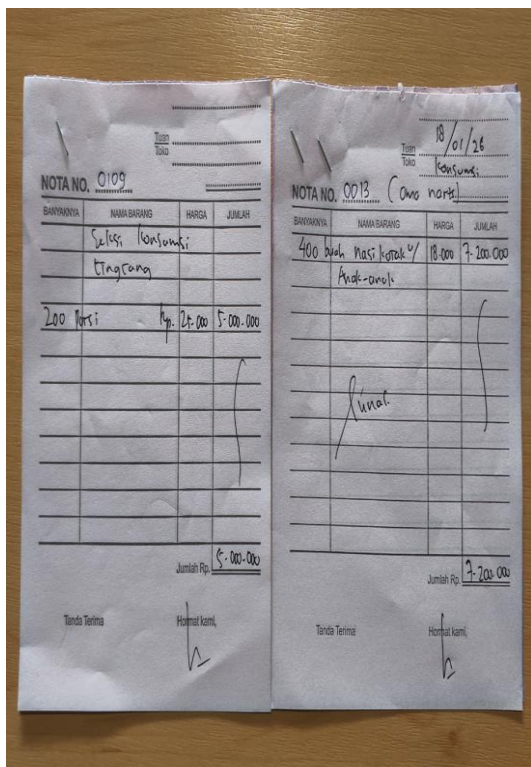 Tuan
Toko
NOTA NO. 0109
BANYAKNYA NAMA BARANG HARGA JUMLAH
Seksi konsumsi
200 Porsi Rp. 25.000 5.000.000
Jumlah Rp. 5.000.000
Tanda Terima Hormat kami,
18/01/26
Tuan
Toko
Konsumsi
NOTA NO. 0013
BANYAKNYA NAMA BARANG HARGA JUMLAH
400 buah nasi kotak u/ 18.000 7.200.000
Anak-anak
Lunas
Jumlah Rp. 7.200.000
Tanda Terima Hormat kami,